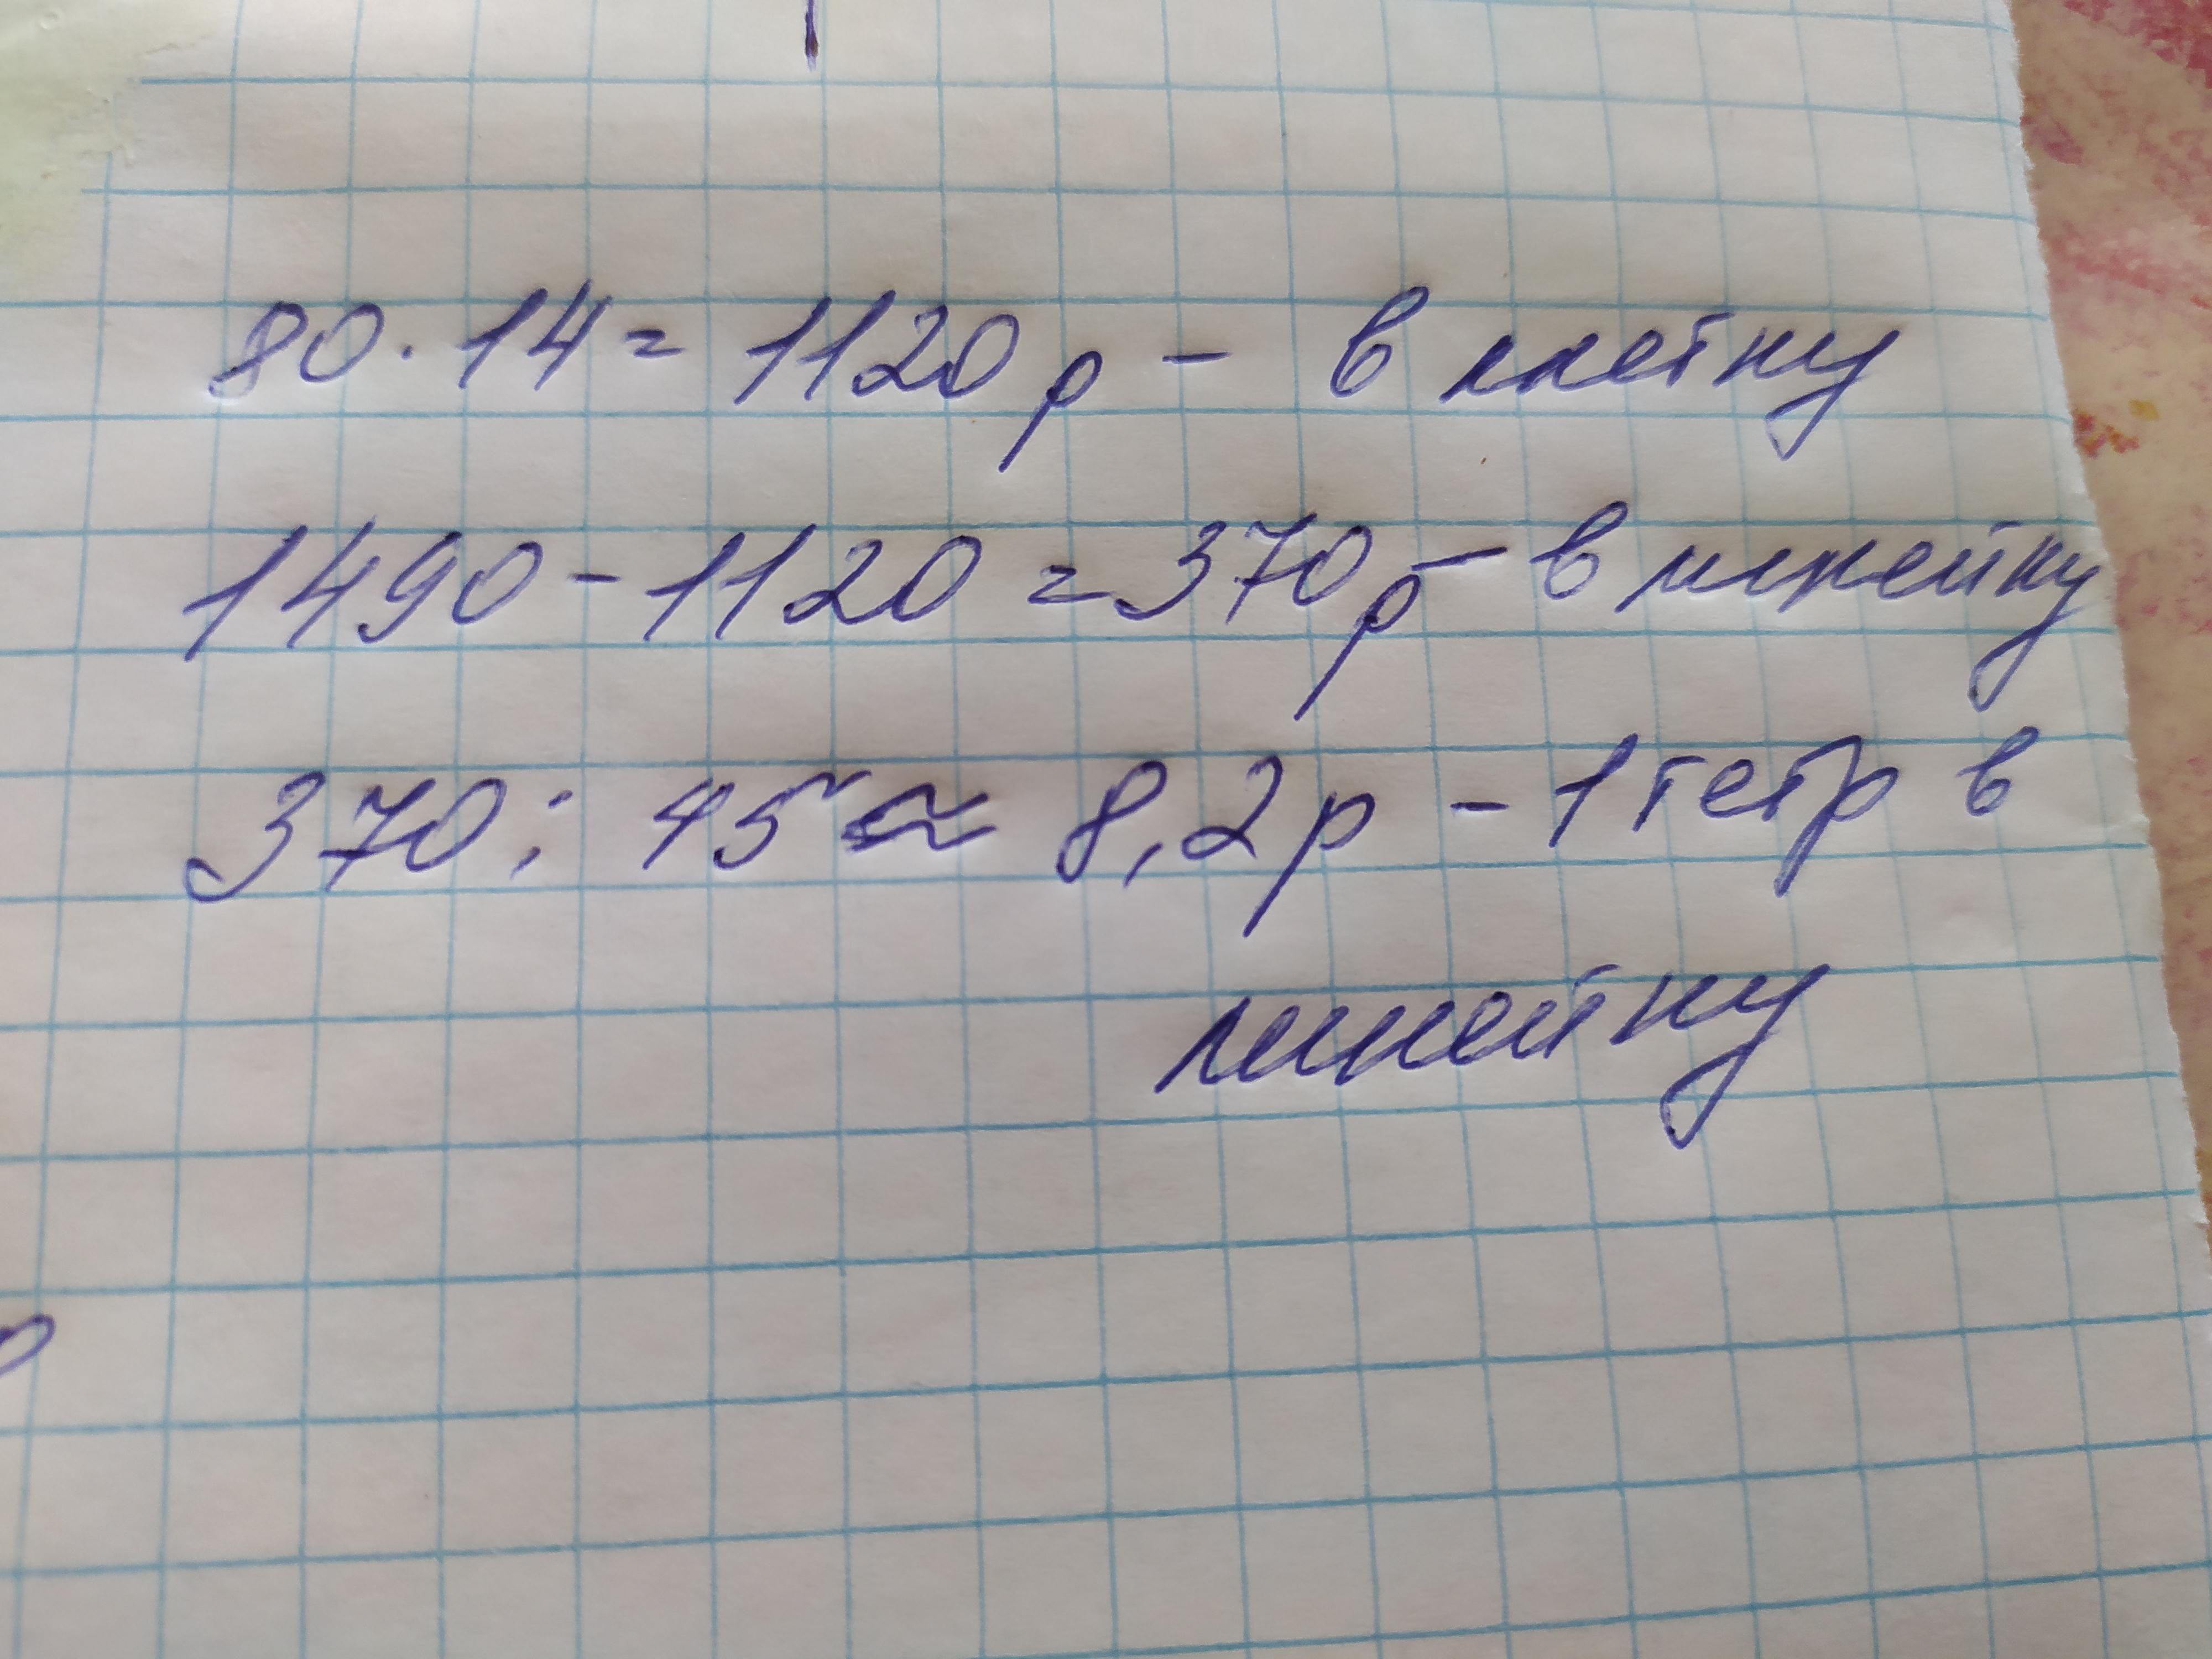 80 · 14 = 1120 р - в клетку
1490 - 1120 = 370 р - в линейку
370 : 45 ≈ 8,2 р - 1 тетр в
линейку